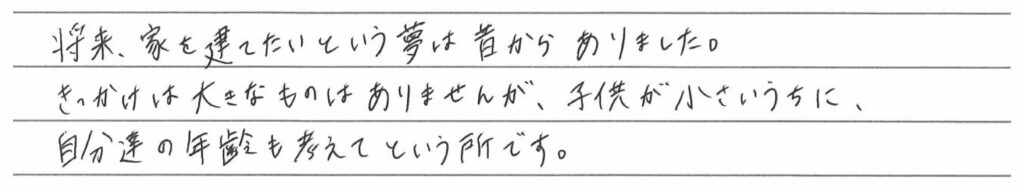 将来、家を建てたいという夢は昔からありました。
きっかけは大きなものはありませんが、子供が小さいうちに、
自分達の年齢も考えてという所です。